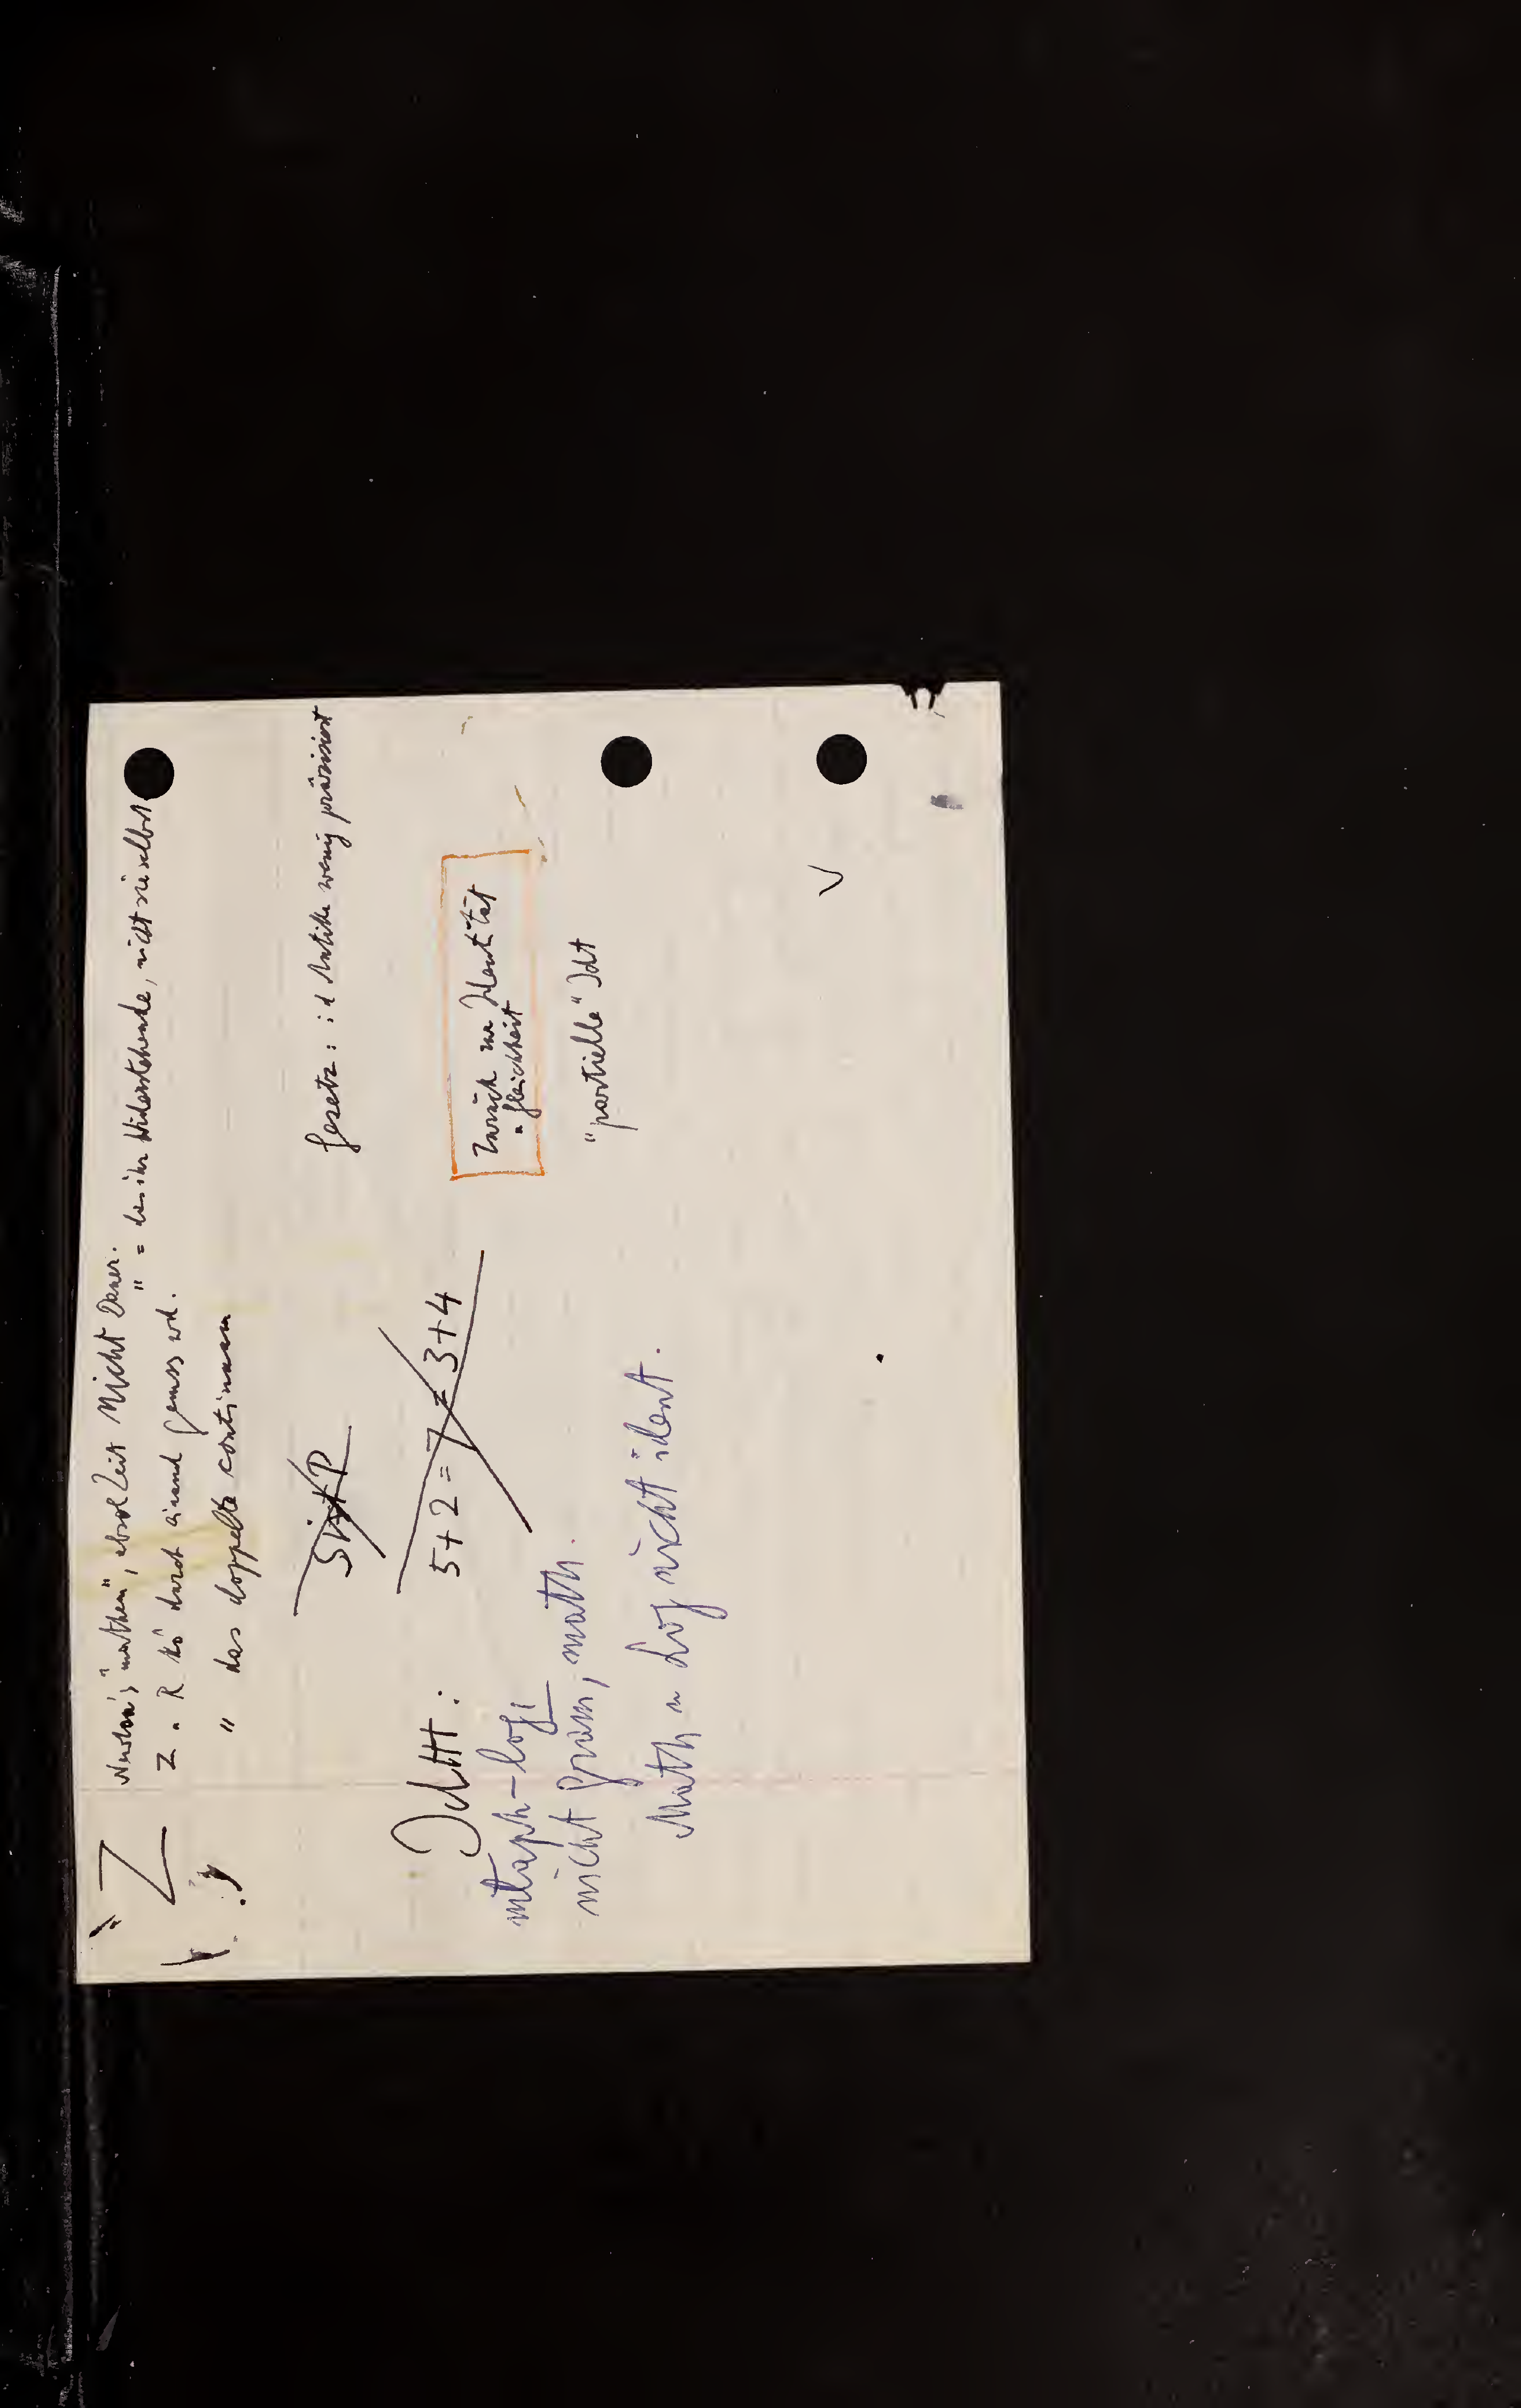 Z
Newton's "mathem", absol Zeit nicht Dauer.
" = das ihr Widerstehende, nicht sie selbst
Z u R kö durch einand gemess wd.
" das doppelte continuum
S ist P
Gesetz: i d Antike wenig präzisiert
Idtt:
5+2 = 7 = 3+4
Zurück zur Identität
u Gleichheit
metaph-logi
nicht gram, math.
"partielle" Idt
Math u Log nicht ident.